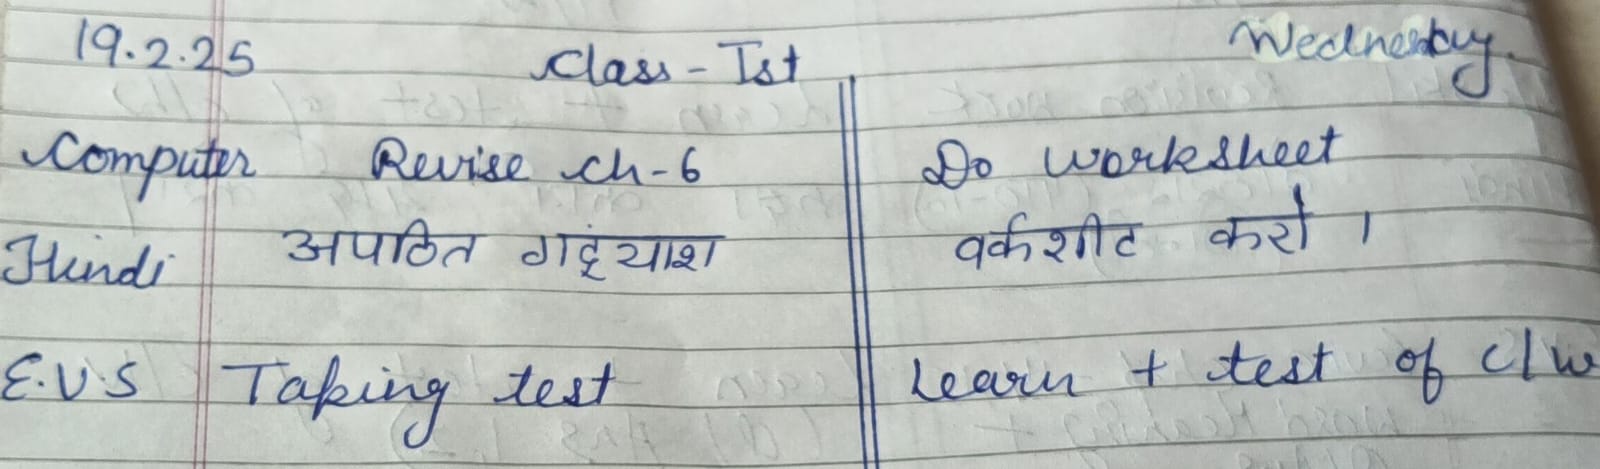 19.2.25 Class - Ist Wednesday.
Computer Revise ch-6 Do worksheet
Hindi अपठित गद्द्यांश वर्कशीट करो ।
E.V.S Taking test Learn + test of c/w